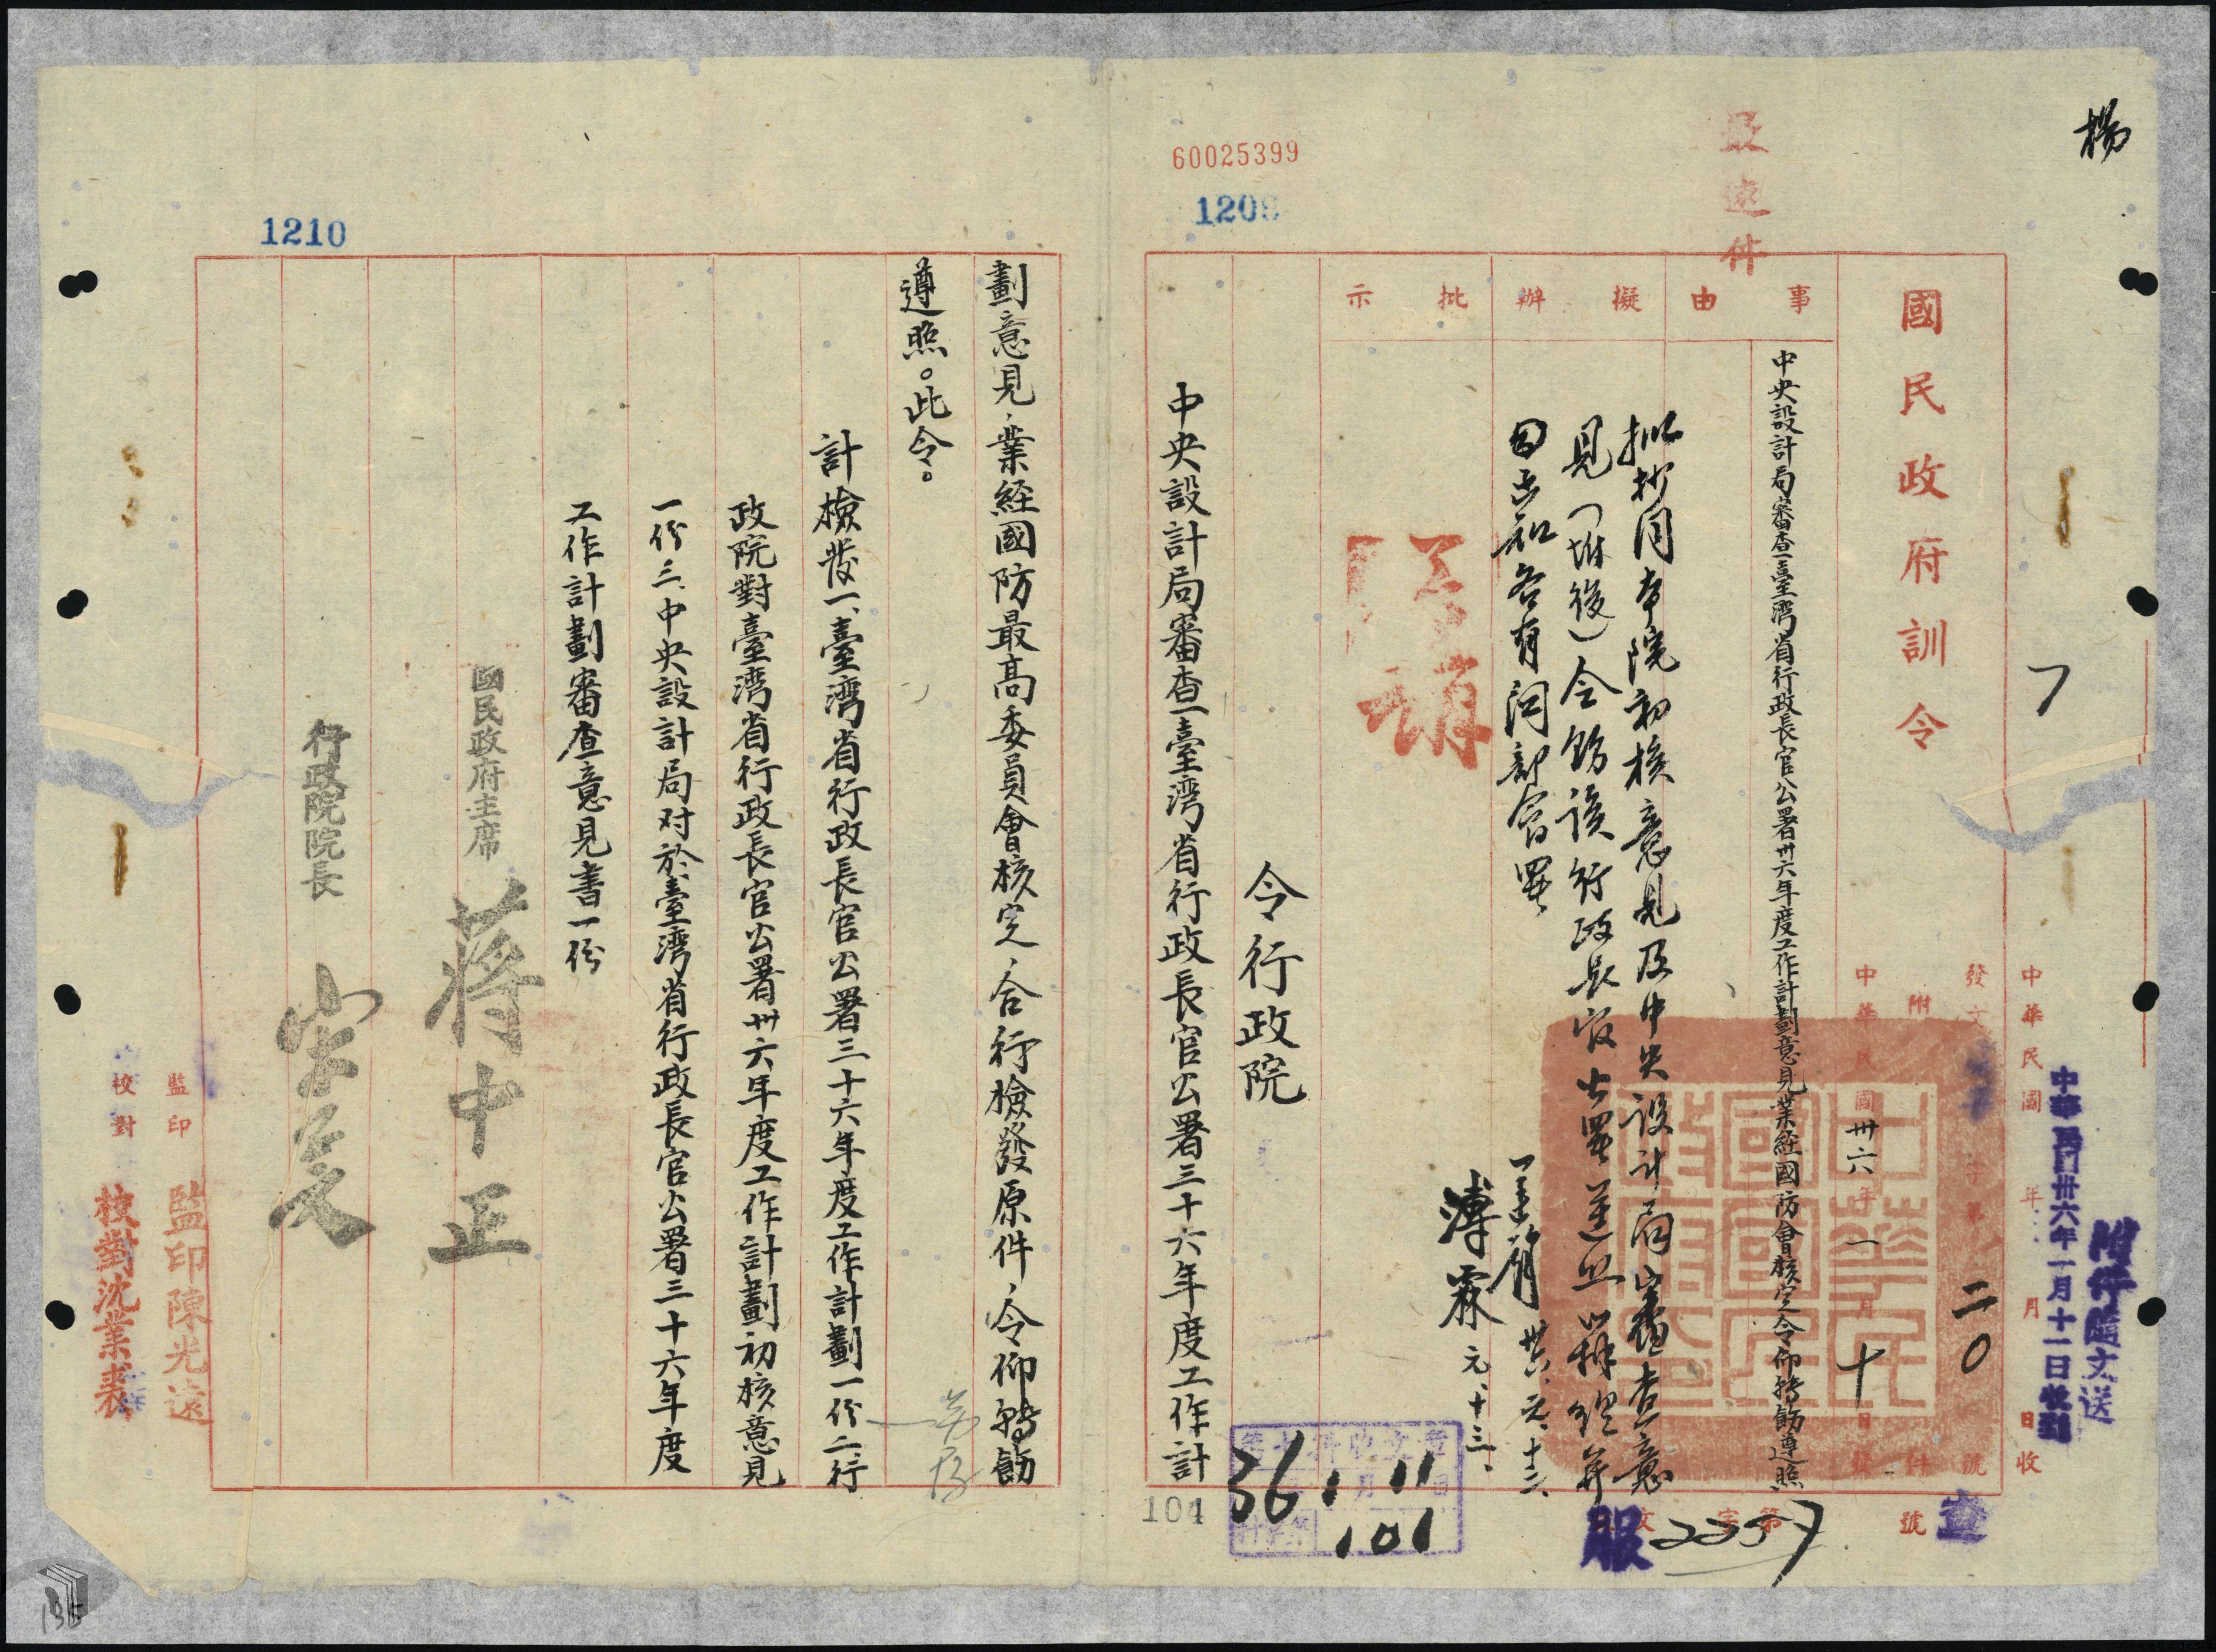 楊
最速件
國民政府訓令
中華民國 年 月 日收
中華民國卅六年一月十一日收到
附件隨文送
發文 字第 二〇 號
附 件
中華民國卅六年一月十日發
事由
中央設計局審查臺灣省行政長官公署卅六年度工作計劃意見業經國防會核定令仰轉飭遵照
擬辦
擬抄同本院初核意見及中央設計局審查意
見(附後)令飭該行政長官公署遵照辦理并
分知各有關部會署
元、十三、
批示
令行政院
中央設計局審查臺灣省行政長官公署三十六年度工作計
60025399
104
36 1 11
101
服
號
劃意見,業經國防最高委員會核定,合行檢發原件,令仰轉飭
遵照。此令。
計檢發一、臺灣省行政長官公署三十六年度工作計劃一份二、行
政院對臺灣省行政長官公署卅六年度工作計劃初核意見
一份三、中央設計局对於臺灣省行政長官公署三十六年度
工作計劃審查意見書一份
國民政府主席 蔣中正
行政院院長 宋子文
監印 監印陳光遠
校對 校對沈業裘
1210